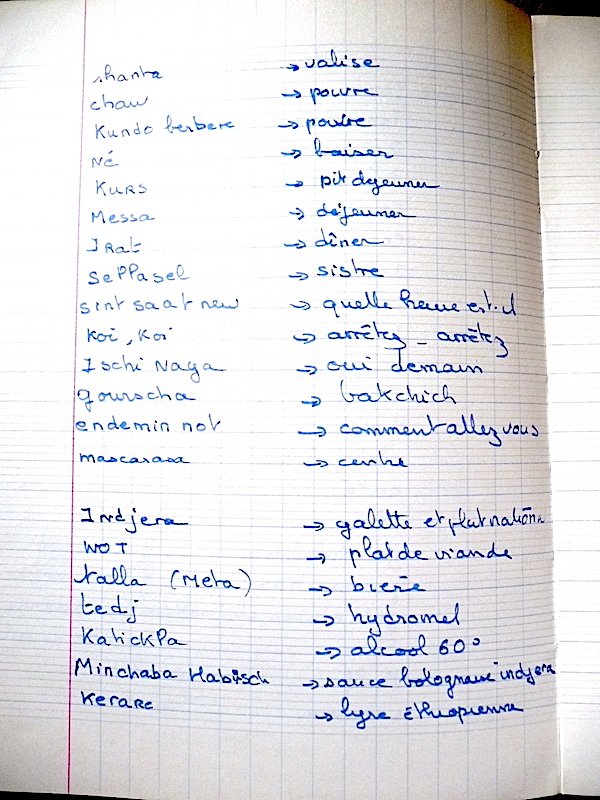 shanta → valise
chaw → poivre
Kundo berbere → poivre
Né → baiser
KURS → pit dejeuner
Messa → déjeuner
IRat → dîner
SePPasel → sistre
sint saat new → quelle heure est-il
Koi, Koi → arrêtez - arrêtez
Ischi Naga → oui demain
gourscha → bakchich
endemin not → comment allez vous
mascarasa → centre
Indjera → galette et plat nation
WOT → plat de viande
talla (Meta) → bière
tedj → hydromel
KatickPa → alcool 60°
Minchaba Habisch → sauce bolognaise indjera
KeraRe → lyre éthiopienne